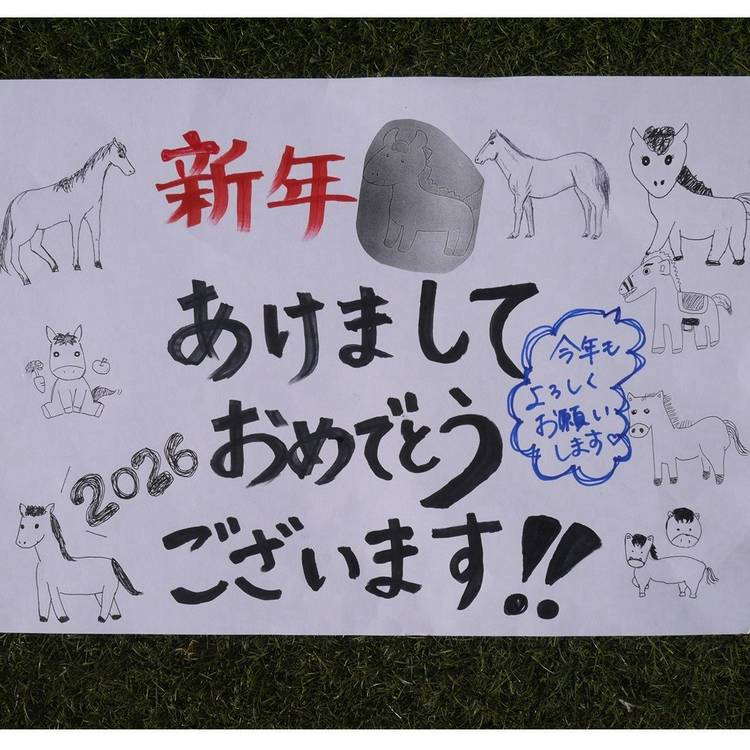 新年
あけまして
おめでとう
ございます!!
今年も
よろしく
お願い
します♡
2026